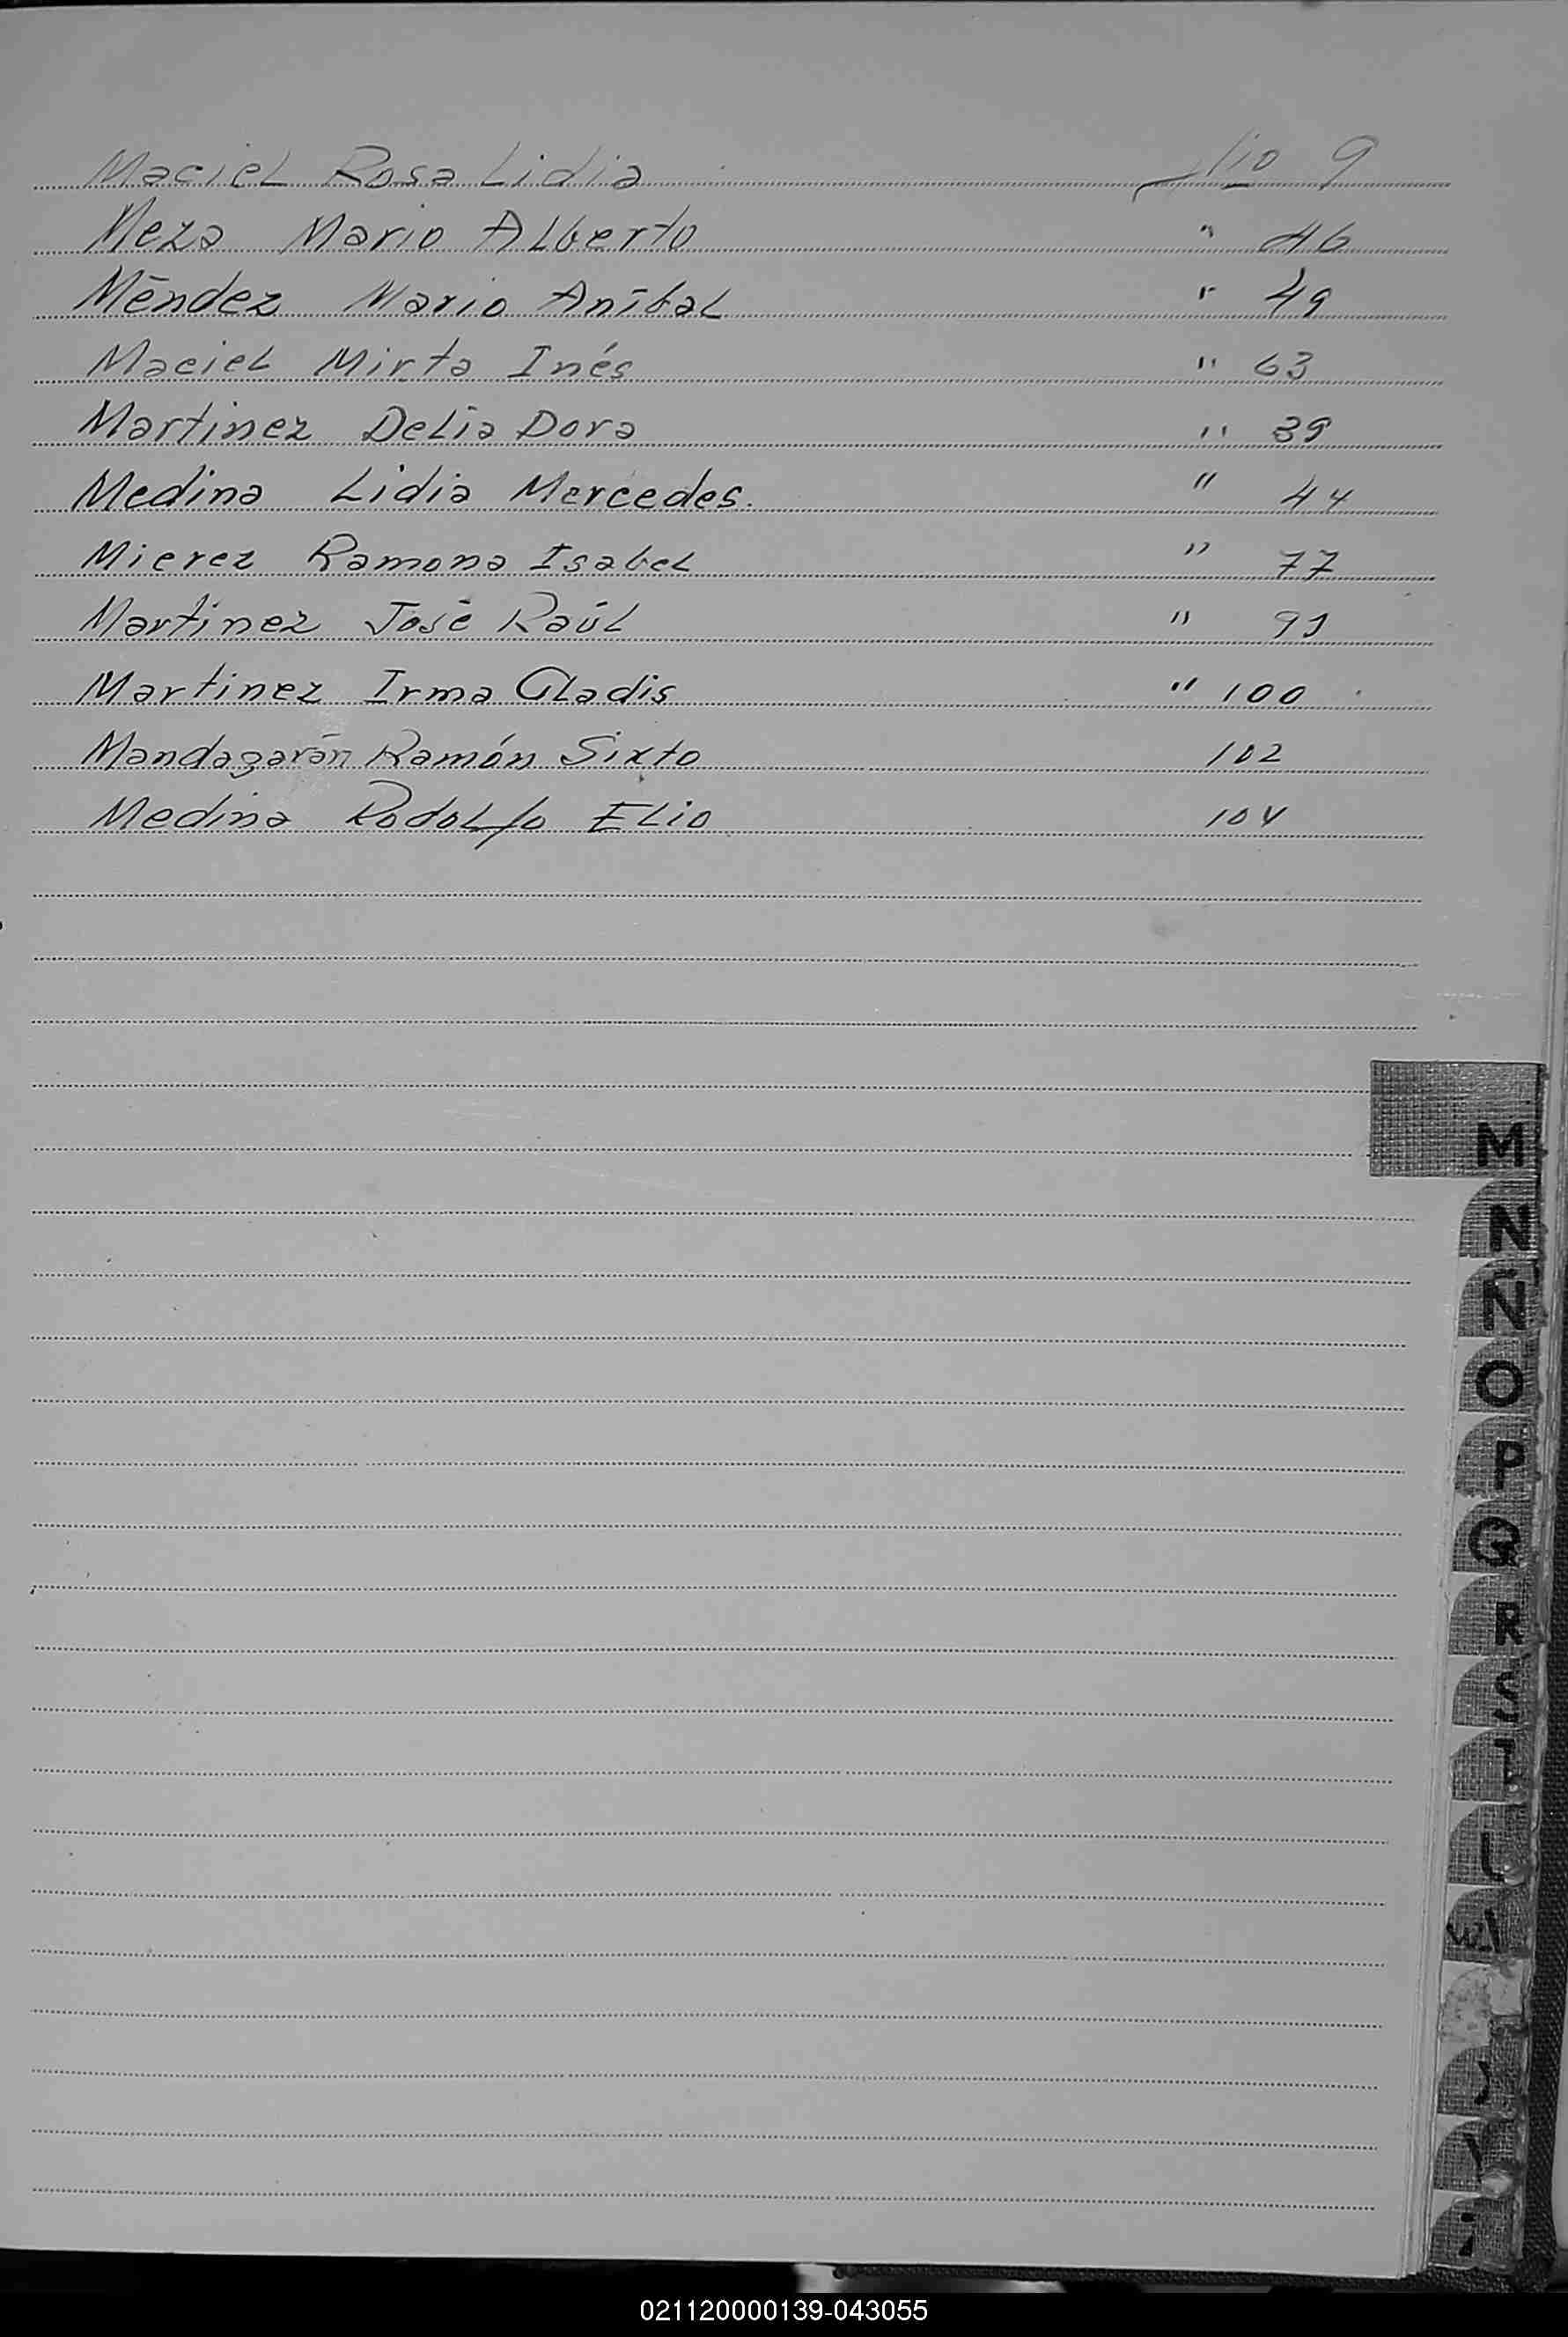 Maciel Rosa Lidia flio 9
Meza Mario Alberto " 46
Méndez Mario Aníbal " 49
Maciel Mirta Inés " 63
Martinez Delia Dora " 39
Medina Lidia Mercedes. " 44
Mierez Ramona Isabel " 77
Martinez José Raúl " 91
Martinez Irma Gladis " 100
Mandagarán Ramón Sixto 102
Medina Rodolfo Elio 104
M
N
Ñ
O
P
Q
R
S
T
021120000139-043055